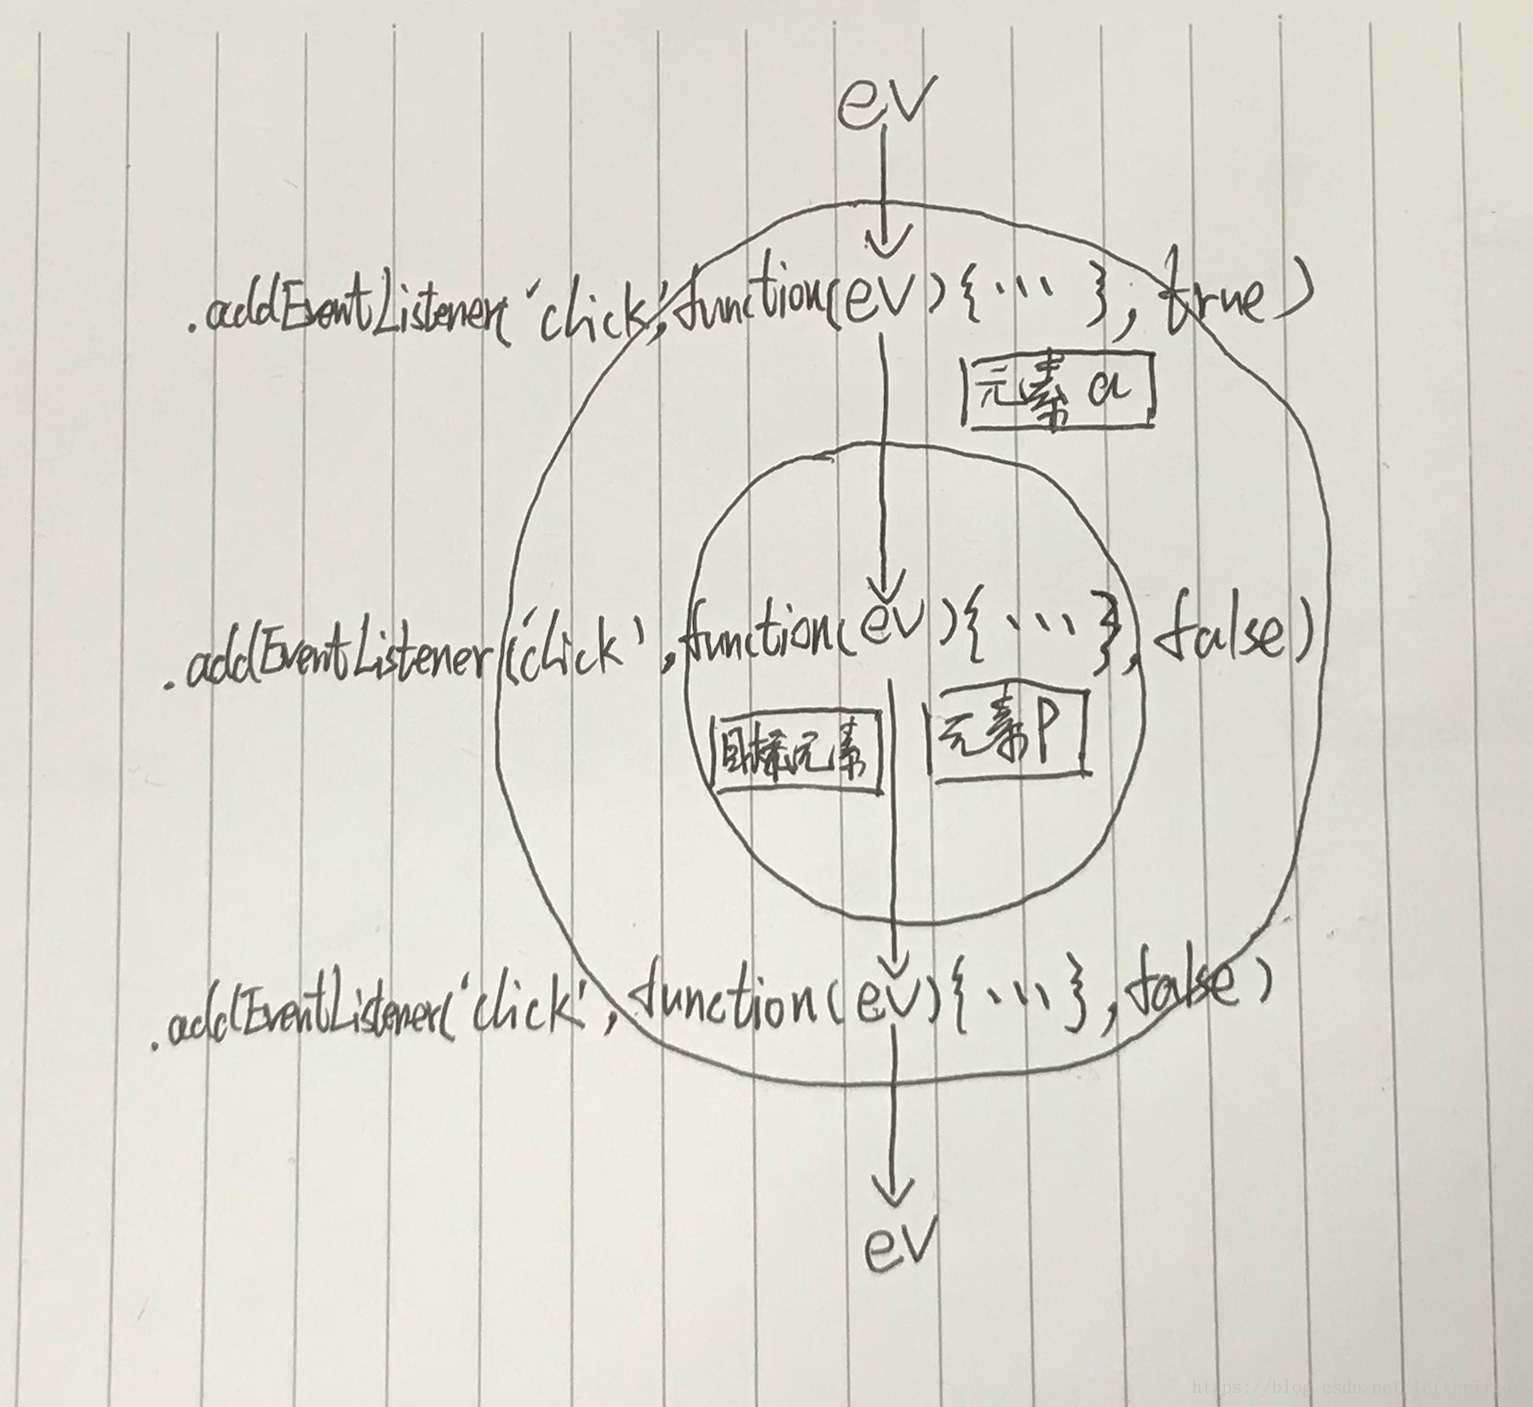 ev
.addEventListener('click',function(ev){...},true)
元素 a
.addEventListener('click',function(ev){...},false)
目标元素
元素P
.addEventListener('click',function(ev){...},false)
ev